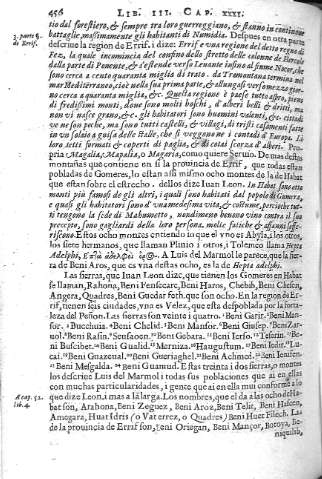 456 LIB. III. CAP. XXXI.
tio dal forestiero, & sempre tra loro guerreggiano, & stanno in continoue
battaglie, massimamente gli habitanti di Numidia. Despues en otra parte
3. parte
de Errif.
descrive la region de Errif, i dize: Errif e una regione del detto regno di
Fez, la quale incomincia del confino dello stretto delle colonne de Hercole
dalla parte di Ponente, & s'estende verso Levante insino al fiume Nocor, che
sono cerca a cento quaranta miglia di trato. da Tramontana termina nel
mar Mediterraneo, cioè nella sua prima parte, & allungasi verso mezzo giorno
cerca a quaranta miglia, &c. Questa regione è paese tutto aspro, pieno
di fredissimi monti, dove sono molti boschi, d'alberi belli & dritti, ma
non vi nasce grano, &c. gli habitatori sono huomini valenti, &
vi ne son poche, ma sono tutti castelli, & villagi, di tristi casamenti fatte
in un solaio a guisa delle stalle, che si veggono ne i contadi d'Europa. Li
loro tetti formati & coperti di paglia, & di cotai scorza d'alberi.
pria Magalia, Mapalia, o Magaria, como quiere Servio. De mas destas
montañas que contienen en si la provincia de Errif, que todas estan
pobladas de Gomeres, lo estan assi mismo ocho montes de la de Habat
que estan sobre el estrecho. dellos dize Iuan Leon. In Habat sono otto
monti piu famosi de gli altri, i quali sono habitati dal popolo di Gumera,
e quasi gli habitatori sono d'una medesima vita, & costume, percioche tut-
ti tengono la fede di Mahumetto, nondimeno beveno vino contra il suo
precepto, sono gagliardi della loro persona, molte fatiche & affanni soffe-
riscono. Estos ocho montes entiendo io que el uno es Abyla, i los otros,
los siete hermanos, que llaman Plinio i otros, i Tolemeo llama Hepta
Adelphi, A Luis del Marmol le parece, que la sier-
ra de Beni Aros, que es una destas ocho, es la de Hepta adelphi.
Las sierras, que Iuan Leon dize, que tienen los Gomeres en Habat
se llaman, Rahona, Beni Fensecare, Beni Haros, Chebib, Beni Chesen,
Angera, Quadres, Beni Guedar feth, que son ocho. En la region de Er-
rif, tienen seis ciudades, una es Velez, que està despoblada por la forta-
leza del Peñon. Las sierras son veinte i quatro. Beni Garir. Beni Man-
sor. Bucchuia. Beni Chelid. Beni Mansor. Beni Giusep. Beni Zar-
uol. Beni Rasin. Seusaoen. Beni Gebara. Beni Ierso. Tesarin. Be-
ni Busebet. Beni Gualid. Merniza. Haugustum. Beni Iedir. Lu-
cai. Beni Guazeual. Beni Gueriaghel. Beni Achmed. Beni Ieinfen.
Beni Mesgalda. Beni Guamud. Estas treinta i dos sierras, o montes
los descrive Luis del Marmol i todas sus poblaciones que ai en ellas
con muchas particularidades, i gente que ai en ella mui conforme a lo
A cap. 52.
lib. 4.
que dize Leon, i mas a la larga. Los nombres, que el da a las ocho de Ha-
bat son, Arahona, Beni Zeguez, Beni Aroz, Beni Telit, Beni Hascen,
Amegara, Huat Idris (o Vaterrez, o Quadres) Beni Huet Filech. Las
de la provincia de Errif son, seni Oriegan, Beni Mançor, Botoya, Be-